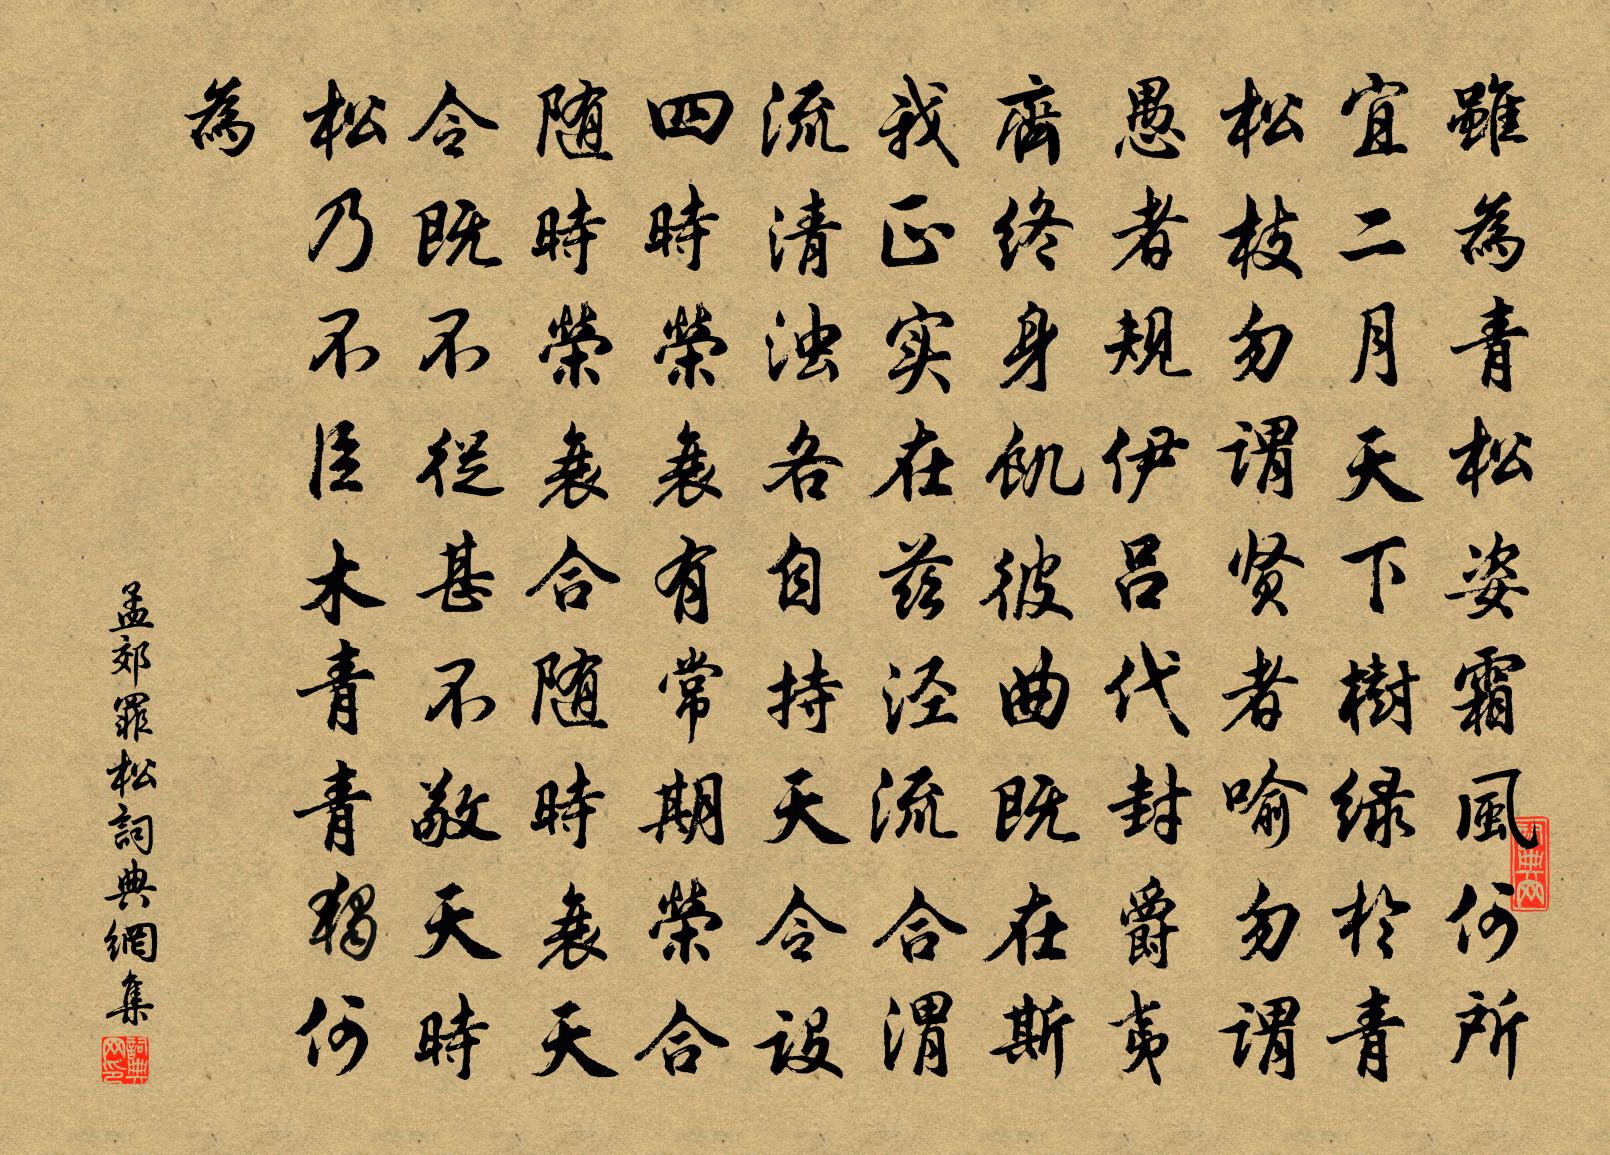 雖為青松姿霜風何所
宜二月天下樹绿於青
松枝勿谓贤者喻勿谓
愚者规伊吕代封爵夷
齊终身飢彼曲既在斯
我正实在兹泾流合渭
流清浊各自持天令设
四時榮衰有常期榮合
随時榮衰合随時衰天
令既不從甚不敬天時
松乃不臣木青青独何
為
孟郊罪松詞典網集
词典网
詞典网印